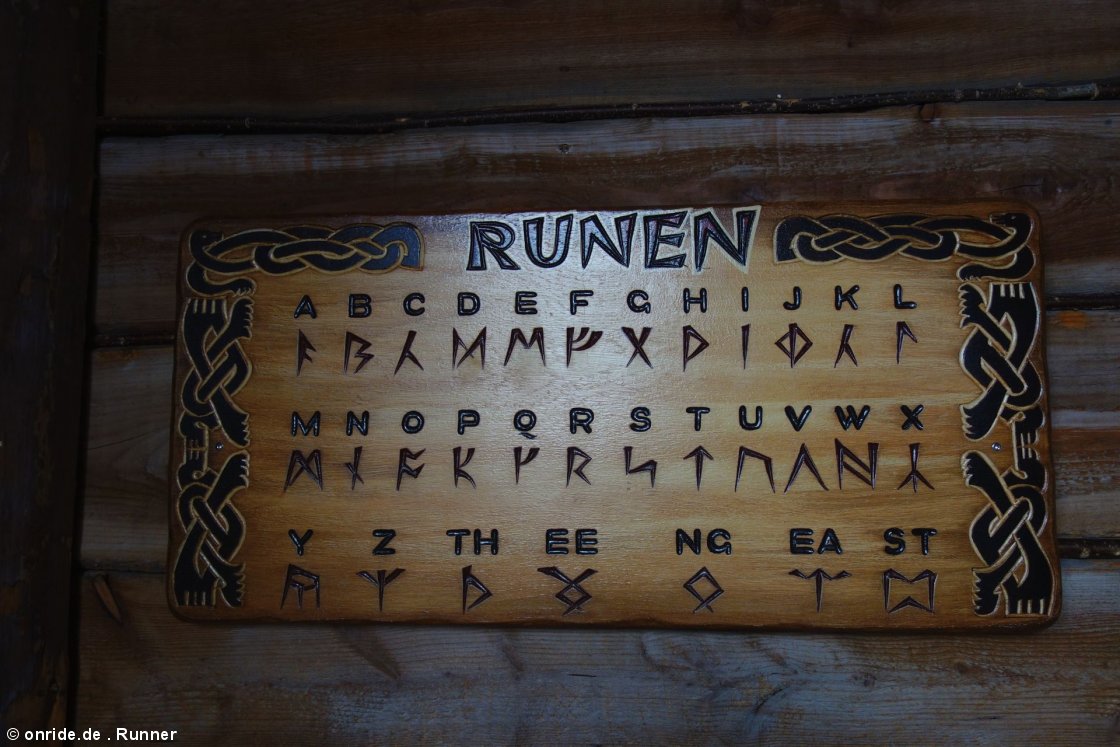 RUNEN
A B C D E F G H I J K L
ᚨ ᛒ ᛞ ᛖ ᚠ ᚷ ᚦ ᛁ ᛚ
M N O P Q R S T U V W X
ᛗ ᚾ ᚱ ᛋ ᛏ ᚢ ᚻ ᛣ
Y Z TH EE NG EA ST
ᚣ ᛉ ᚦ ᛟ
© onride.de . Runner